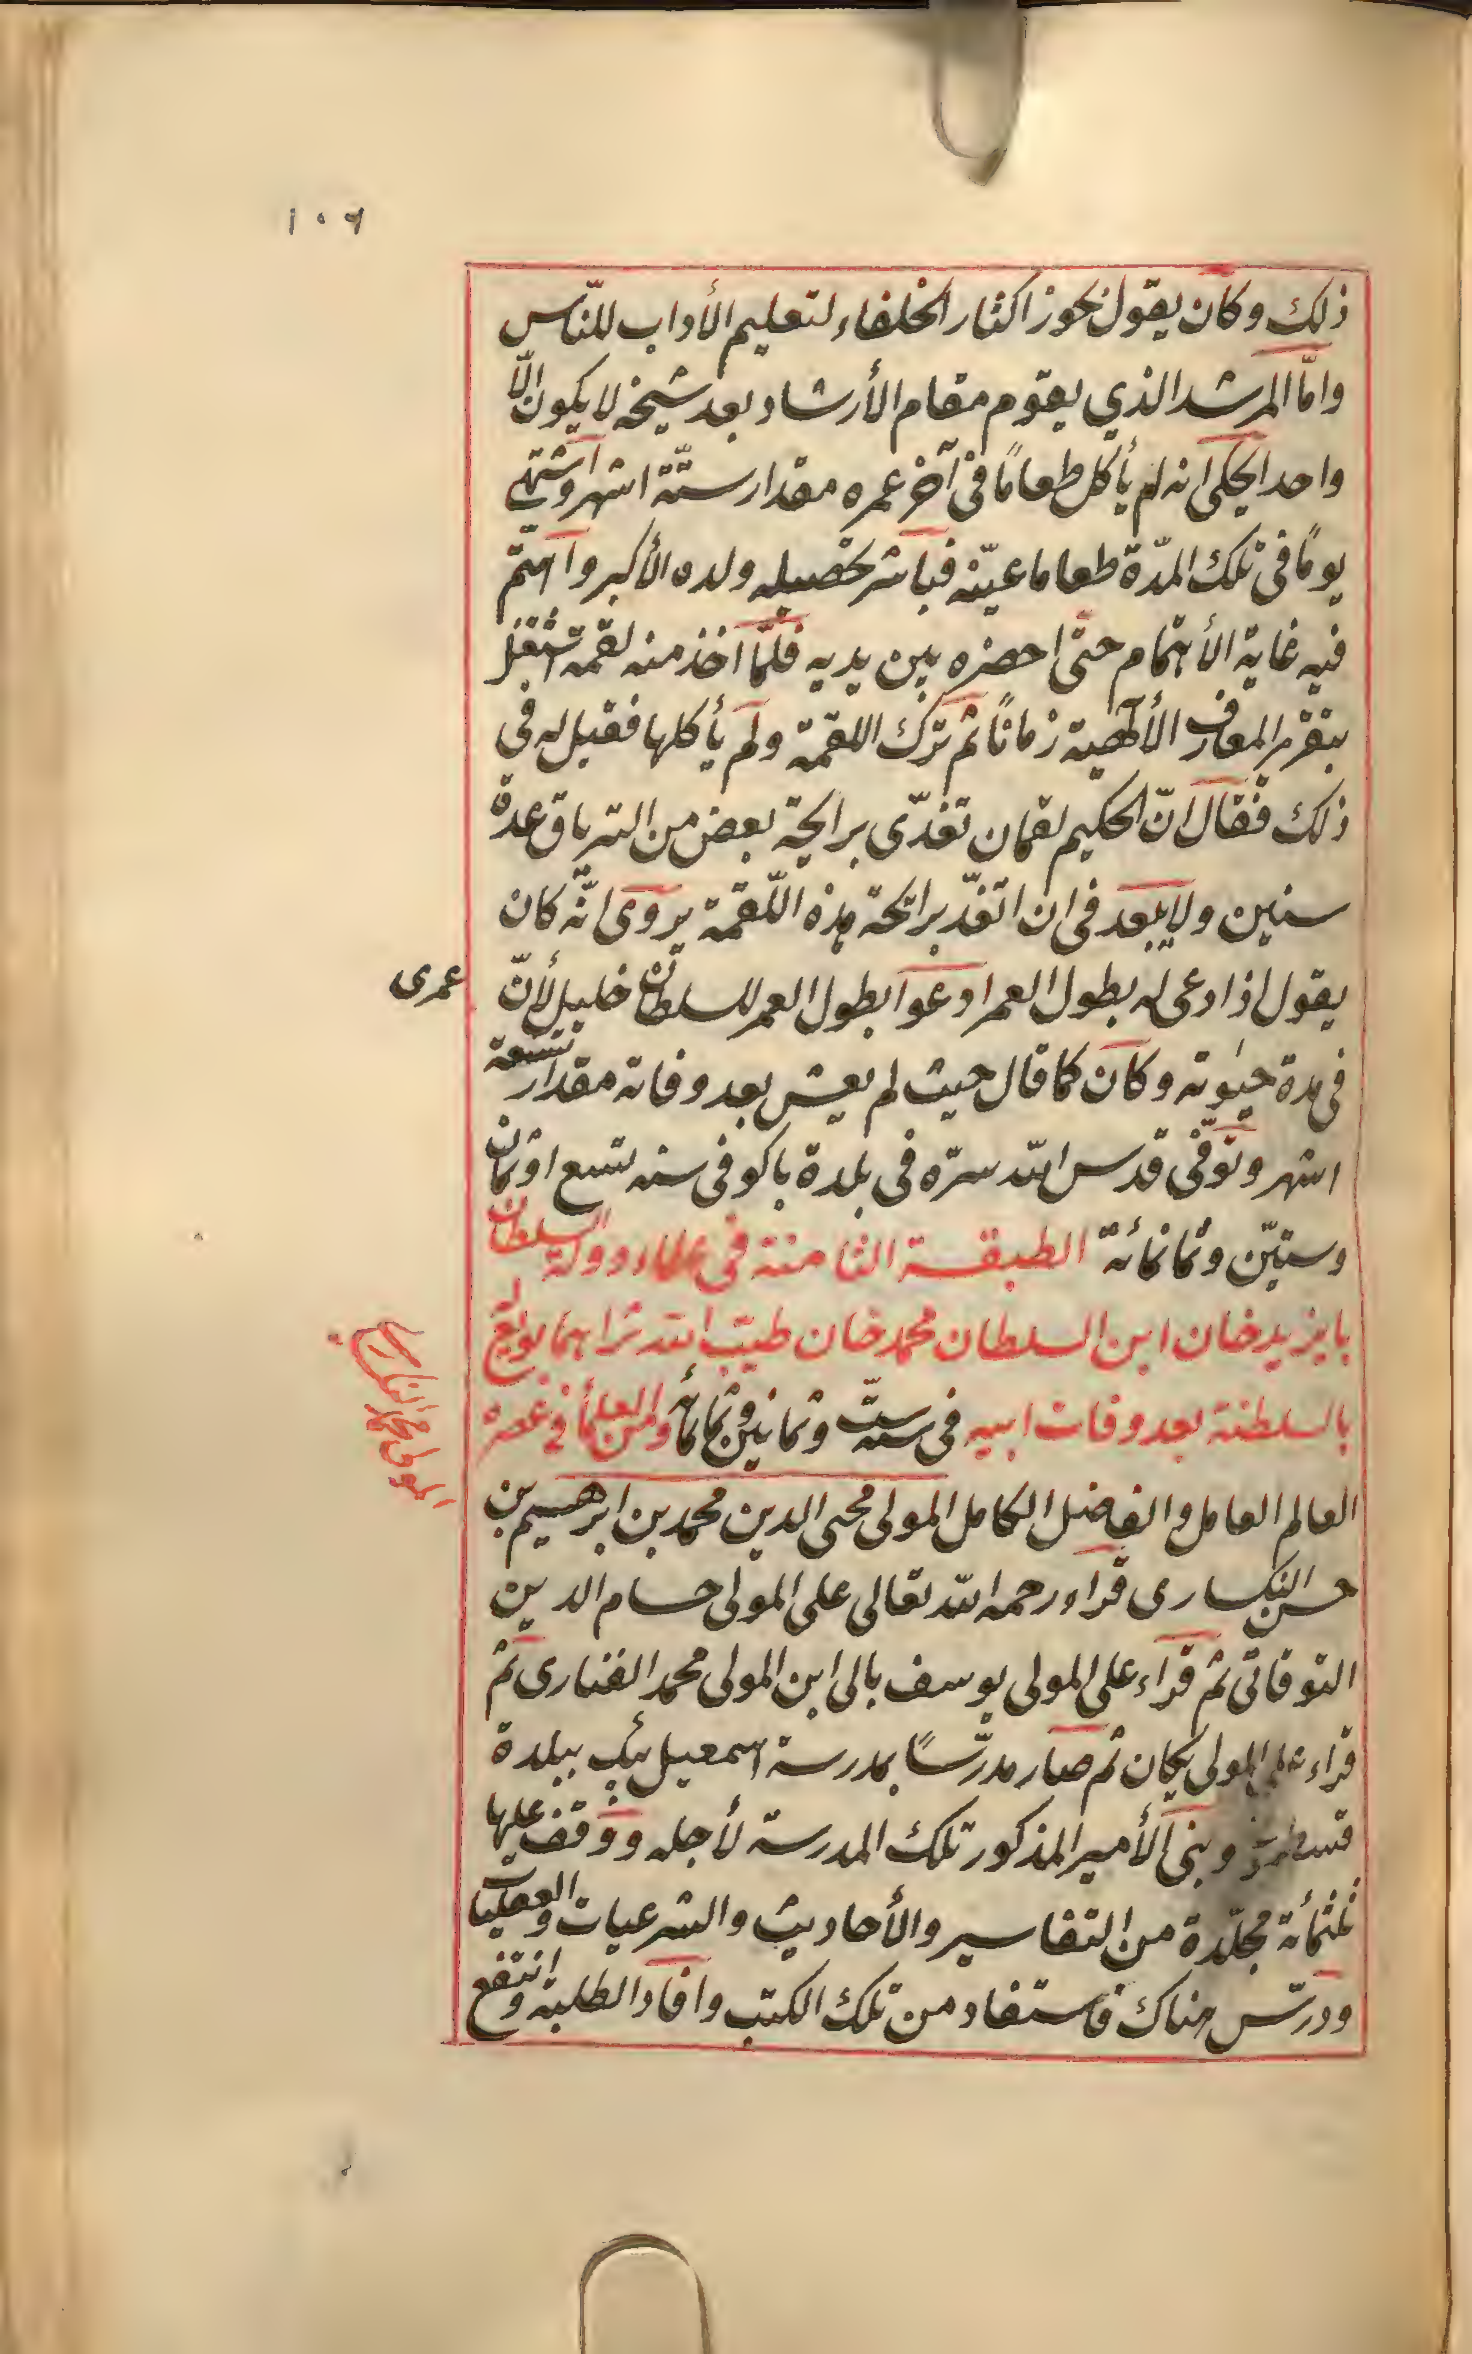 ١٠٦
ذلك وكان يقول يجوز اكثار الخلفاء لتعليم الأداب للنّاس
وامّا المرشد الذي يقوم مقام الأرشاد بعد شيخه لا يكون الّا
واحد ايحكى انه لم يأكل طعامًا فى آخر عمره مقدار ستّة اشهر واشتهى
يومًا فى تلك المدّة طعاما عيّنه فباشر تحصيله ولده الأكبر واهتمّ
فيه غاية الأهتمام حتى احضره بين يديه فلمّا اخذ منه لقمة اشتغل
بتقرير المعارف الألٓهية زمانًا ثم ترك اللقمة ولم يأكلها فقيل له فى
ذلك فقال انّ الحكيم لقمان تغدّى برايحة بعض من الترياق عدة
سنين ولا يبعد فى ان اتغدّ برائحة هذه اللّقمة يروى انّه كان
يقول اذا دعى له بطول العمر ادعوا بطول العمر للسلطان خليل لأنّ
عمرى
فى مدة حيٰوته وكان كما قال حيث لم يعش بعد وفاته مقدار تسعة
اشهر وتوفّى قدس الله سرّه فى بلدة باكو فى سنه تسع او ثمان
وستيّن وثمانمائة الطبقة الثامنة فى علماء دولة السلطان
بايزيد خان ابن السلطان محمد خان طيّب الله ثراهما بويع له
بالسلطنة بعد وفات ابيه فى سنه ستّ وثمانين وثمانمائه ومن العلمأ فى عصره
المولى محمد النكسارى
العالم العامل والفاضل الكامل المولى محى الدين محمد بن ابرهيم بن
حسن النكسارى قراء رحمه الله تعالى على المولى حسام الدين
التوقاتى ثم قراء على المولى يوسف بالى ابن المولى محمد الفنارى ثم
قراء على المولى يكان ثم صار مدرّسًا بمدرسة اسمعيل بيك ببلدة
وبنى الأمير المذكور تلك المدرسة لأجله ووقف عليها
ثلثمائة مجلّدة من التفاسير والأحاديث والشرعيات والعقليات
ودرّس هناك فاستفاد من تلك الكتب وافاد الطلبة وانتفع